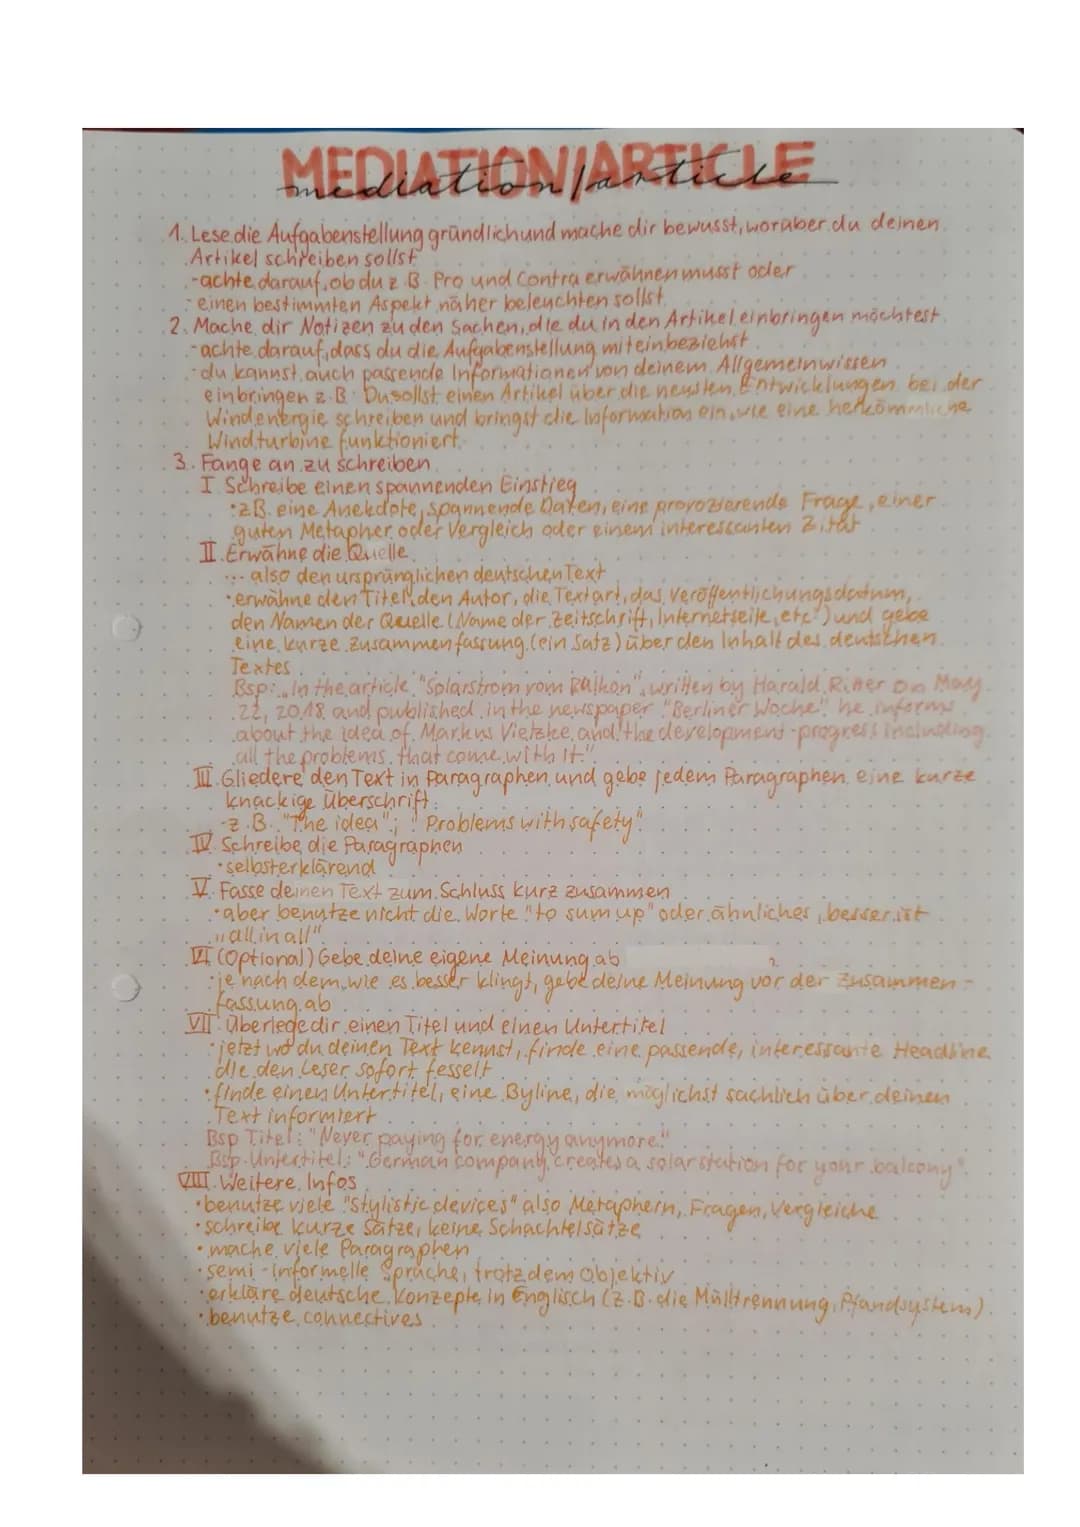 MEDIATION/ARTICLE
mediation/article
1. Lese die Aufgabenstellung gründlich und mache dir bewusst, worüber du deinen
Artikel schreiben sollst
- achte darauf, ob du z.B. Pro und Contra erwähnen musst oder
- einen bestimmten Aspekt näher beleuchten sollst
2. Mache dir Notizen zu den Sachen, die du in den Artikel einbringen möchtest
- achte darauf, dass du die Aufgabenstellung miteinbeziehst
- du kannst auch passende Informationen von deinem Allgemeinwissen
einbringen z.B. Du sollst einen Artikel über die neusten Entwicklungen bei der
Windenergie schreiben und bringst die Information ein, wie eine herkömmliche
Windturbine funktioniert.
3. Fange an zu schreiben
I Schreibe einen spannenden Einstieg
• z.B. eine Anekdote, spannende Daten, eine provozierende Frage, einer
guten Metapher oder Vergleich oder einem interessanten Zitat
II. Erwähne die Quelle
... also den ursprünglichen deutschen Text
• erwähne den Titel, den Autor, die Textart, das Veröffentlichungsdatum,
den Namen der Quelle (Name der Zeitschrift, Internetseite, etc.) und gebe
eine kurze Zusammenfassung (ein Satz) über den Inhalt des deutschen
Textes
Bsp: „In the article "Solarstrom vom Balkon", written by Harald Ritter on May
22, 2018 and published in the newspaper "Berliner Woche" he informs
about the idea of Markus Vietzke and the development-progress including
all the problems that come with it."
III. Gliedere den Text in Paragraphen und gebe jedem Paragraphen eine kurze
knackige Überschrift
- z.B. "The idea"; "Problems with safety"
IV. Schreibe die Paragraphen
• selbsterklärend
V. Fasse deinen Text zum Schluss kurz zusammen
• aber benutze nicht die Worte "to sum up" oder ähnliches, besser ist
„all in all"
VI (Optional) Gebe deine eigene Meinung ab
• je nach dem, wie es besser klingt, gebe deine Meinung vor der Zusammen-
fassung ab
VII. Überlege dir einen Titel und einen Untertitel
• jetzt wo du deinen Text kennst, finde eine passende, interessante Headline
die den Leser sofort fesselt
• finde einen Untertitel, eine Byline, die möglichst sachlich über deinen
Text informiert
Bsp Titel: "Never paying for energy anymore!"
Bsp. Untertitel: "German company creates a solar station for your balcony"
VIII. Weitere Infos
• benutze viele "Stylistic devices" also Metaphern, Fragen, Vergleiche
• schreibe kurze Sätze, keine Schachtelsätze
• mache viele Paragraphen
• semi-informelle Sprache, trotzdem objektiv
• erkläre deutsche Konzepte in Englisch (z.B. die Mülltrennung, Pfandsystem)
• benutze connectives